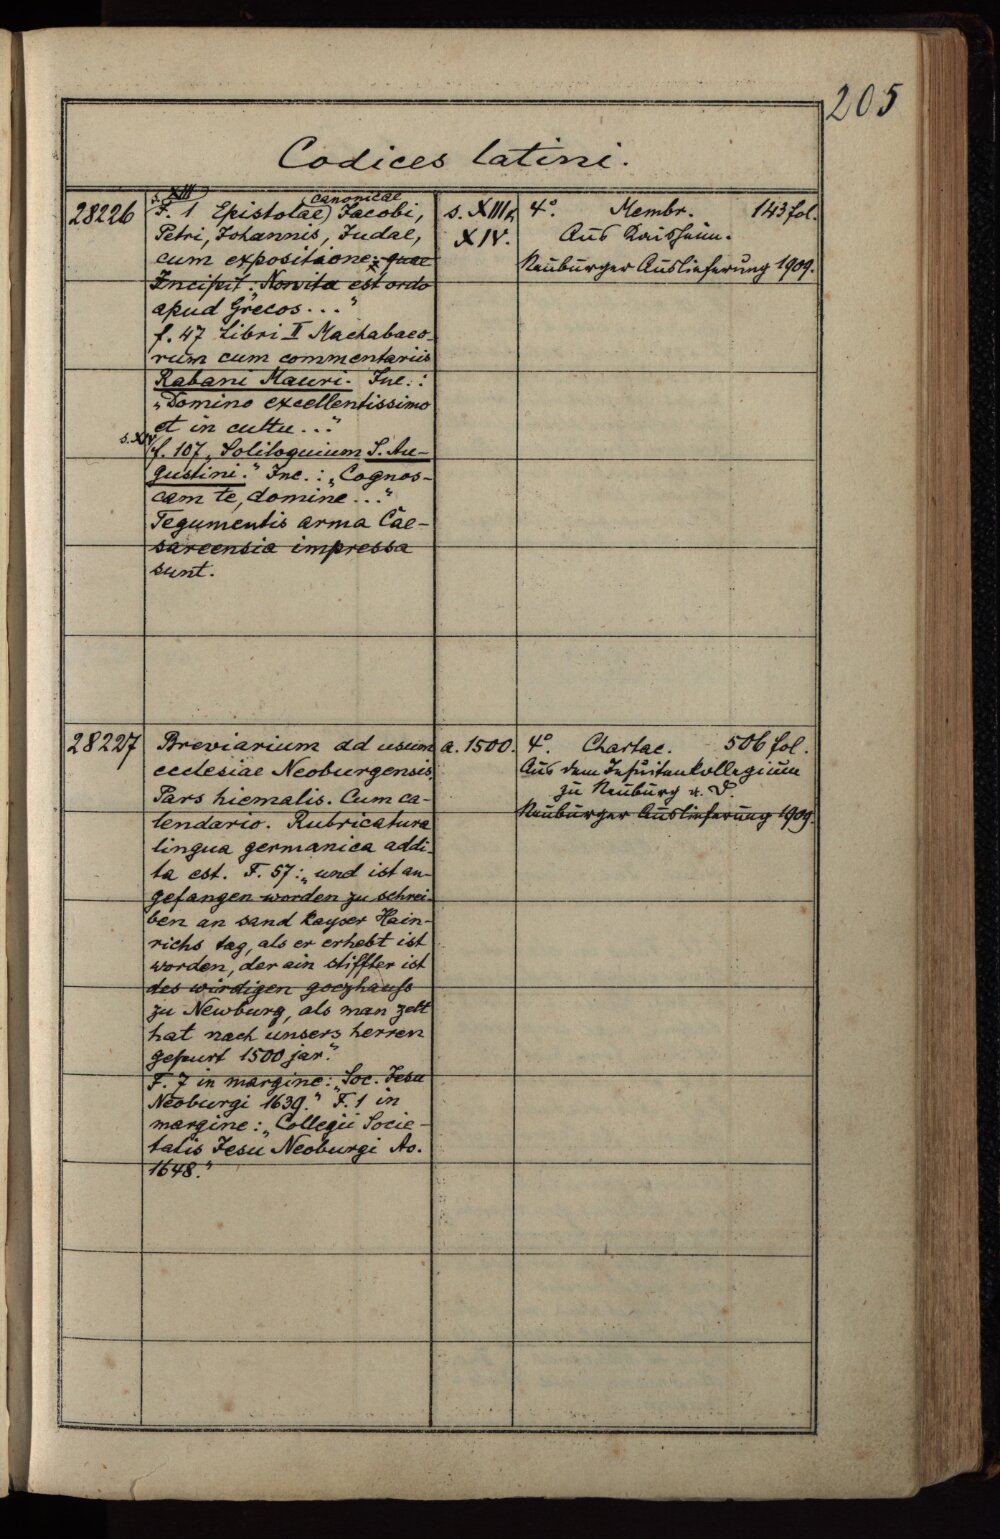 205
Codices latini.
28226
s. XIII
canonicae
F. 1 Epistolae Jacobi,
Petri, Johannis, Judae,
cum expositione: quae
Incipit. Nonita est ordo
apud Grecos . . ."
f. 47 Libri II Machabaeo-
rum cum commentariis
Rabani Mauri. Inc.:
„Domino excellentissimo
et in cultu . . ."
s. XIV
f. 107 „Soliloquium S. Au-
gustini." Inc.: „Cognos-
cam te, domine . . ."
Tegumentis arma Cae-
sareensia impressa
sunt.
s. XIII,
XIV.
4°. Membr. 143 fol.
Aus Kaisheim.
Neuburger Auslieferung 1909.
28227
Breviarium ad usum
ecclesiae Neoburgensis.
Pars hiemalis. Cum ca-
lendario. Rubricatura
lingua germanica addi-
ta est. F. 57: „und ist an-
gefangen worden zu schrei-
ben an sand kayser Hain-
richs tag, als er erhebt ist
worden, der ain stiffter ist
des wirdigen goczhauss
zu Newburg, als man zelt
hat nach unsers herren
gepurt 1500 jar."
F. 7 in margine: „Soc. Jesu
Neoburgi 1639." F. 1 in
margine: „Collegii Socie-
tatis Jesu Neoburgi Ao.
1648."
a. 1500.
4°. Chartac. 506 fol.
Aus dem Jesuitenkollegium
zu Neuburg a. D.
Neuburger Auslieferung 1909.